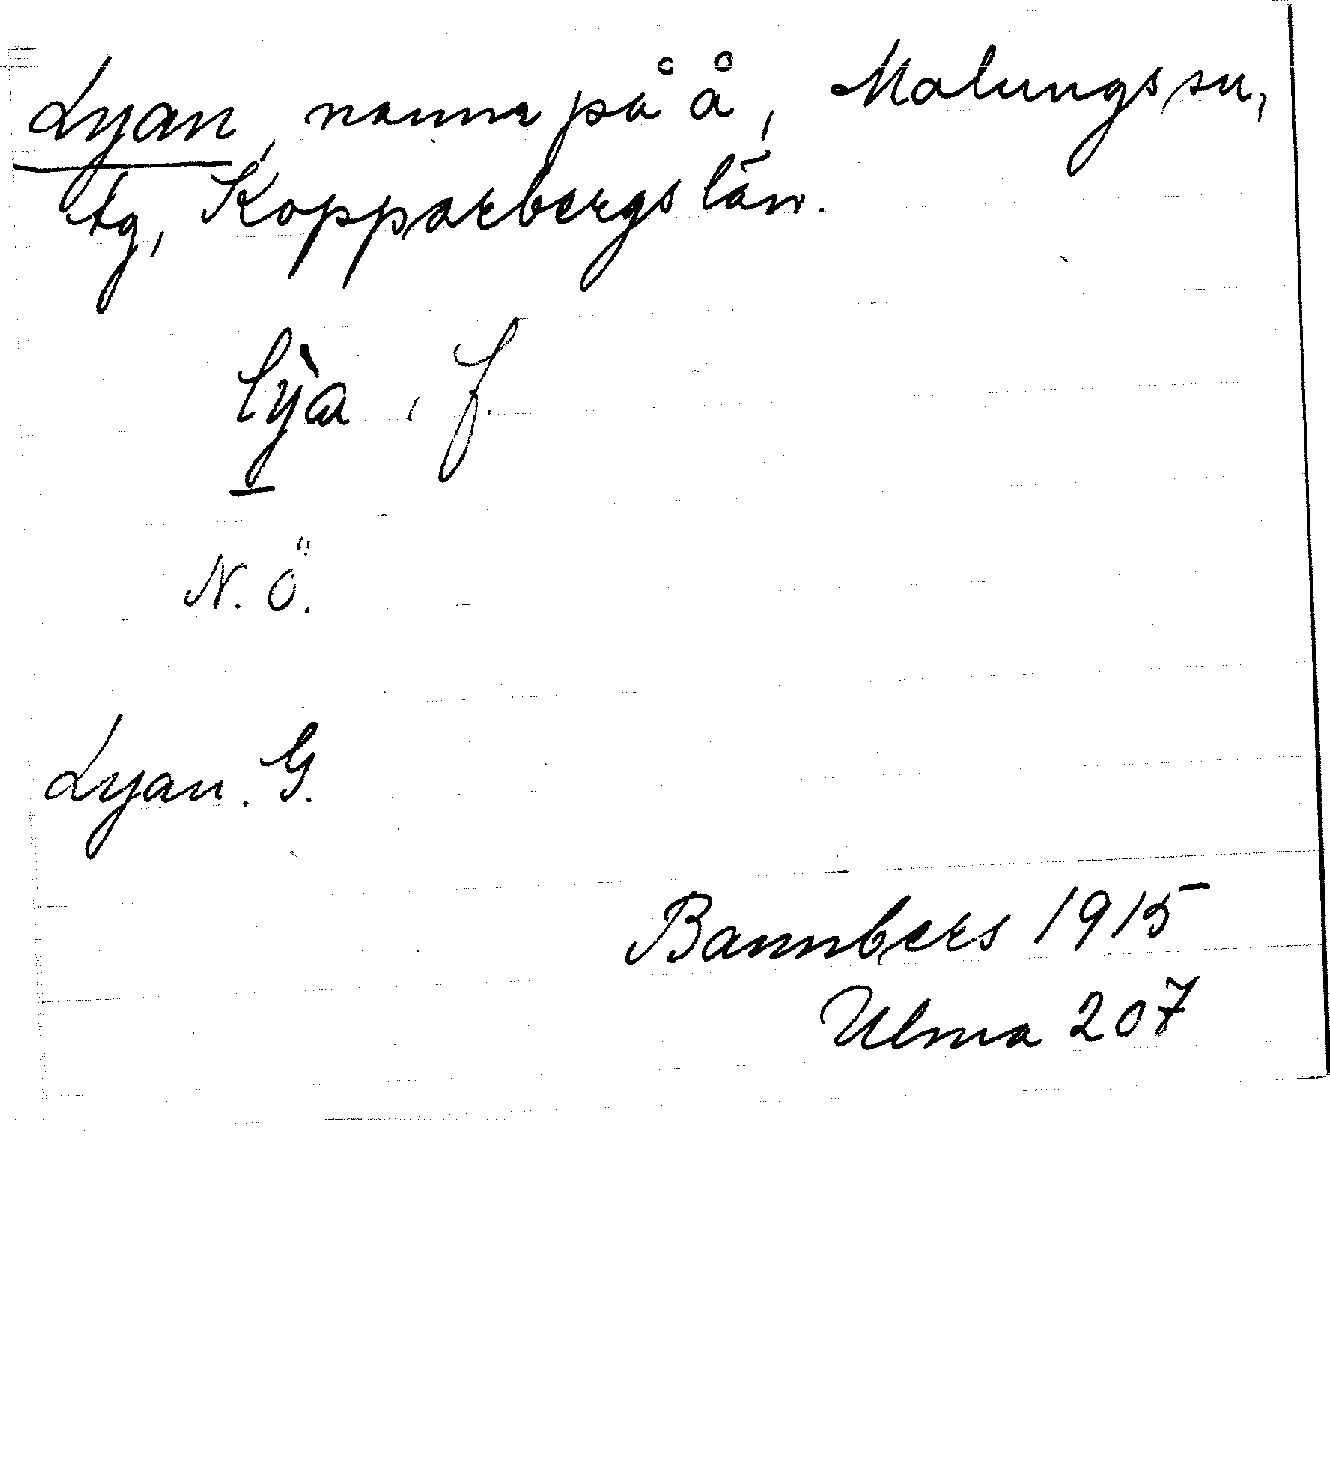 Lyan, namn på å, Malungs sn,
tg, Kopparbergs län.
lỳa, f.
N. Ö.
Lyan. G.
Bannbers 1915
Ulma 207